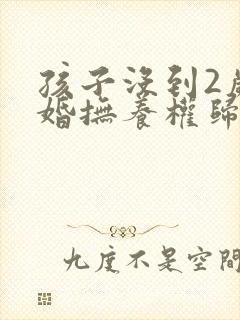 孩子沒到2
婚撫養權歸
九度不是空間